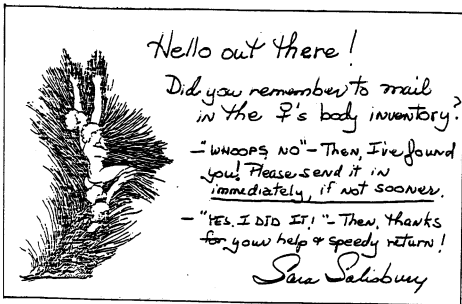 Hello out there!
Did you remember to mail
in the ♀'s body inventory?
-"WHOOPS, NO"- Then, I've found
you! Please send it in
immediately, if not sooner.
-"YES. I DID IT!"- Then, thanks
for your help & speedy return!
Sara Salisbury